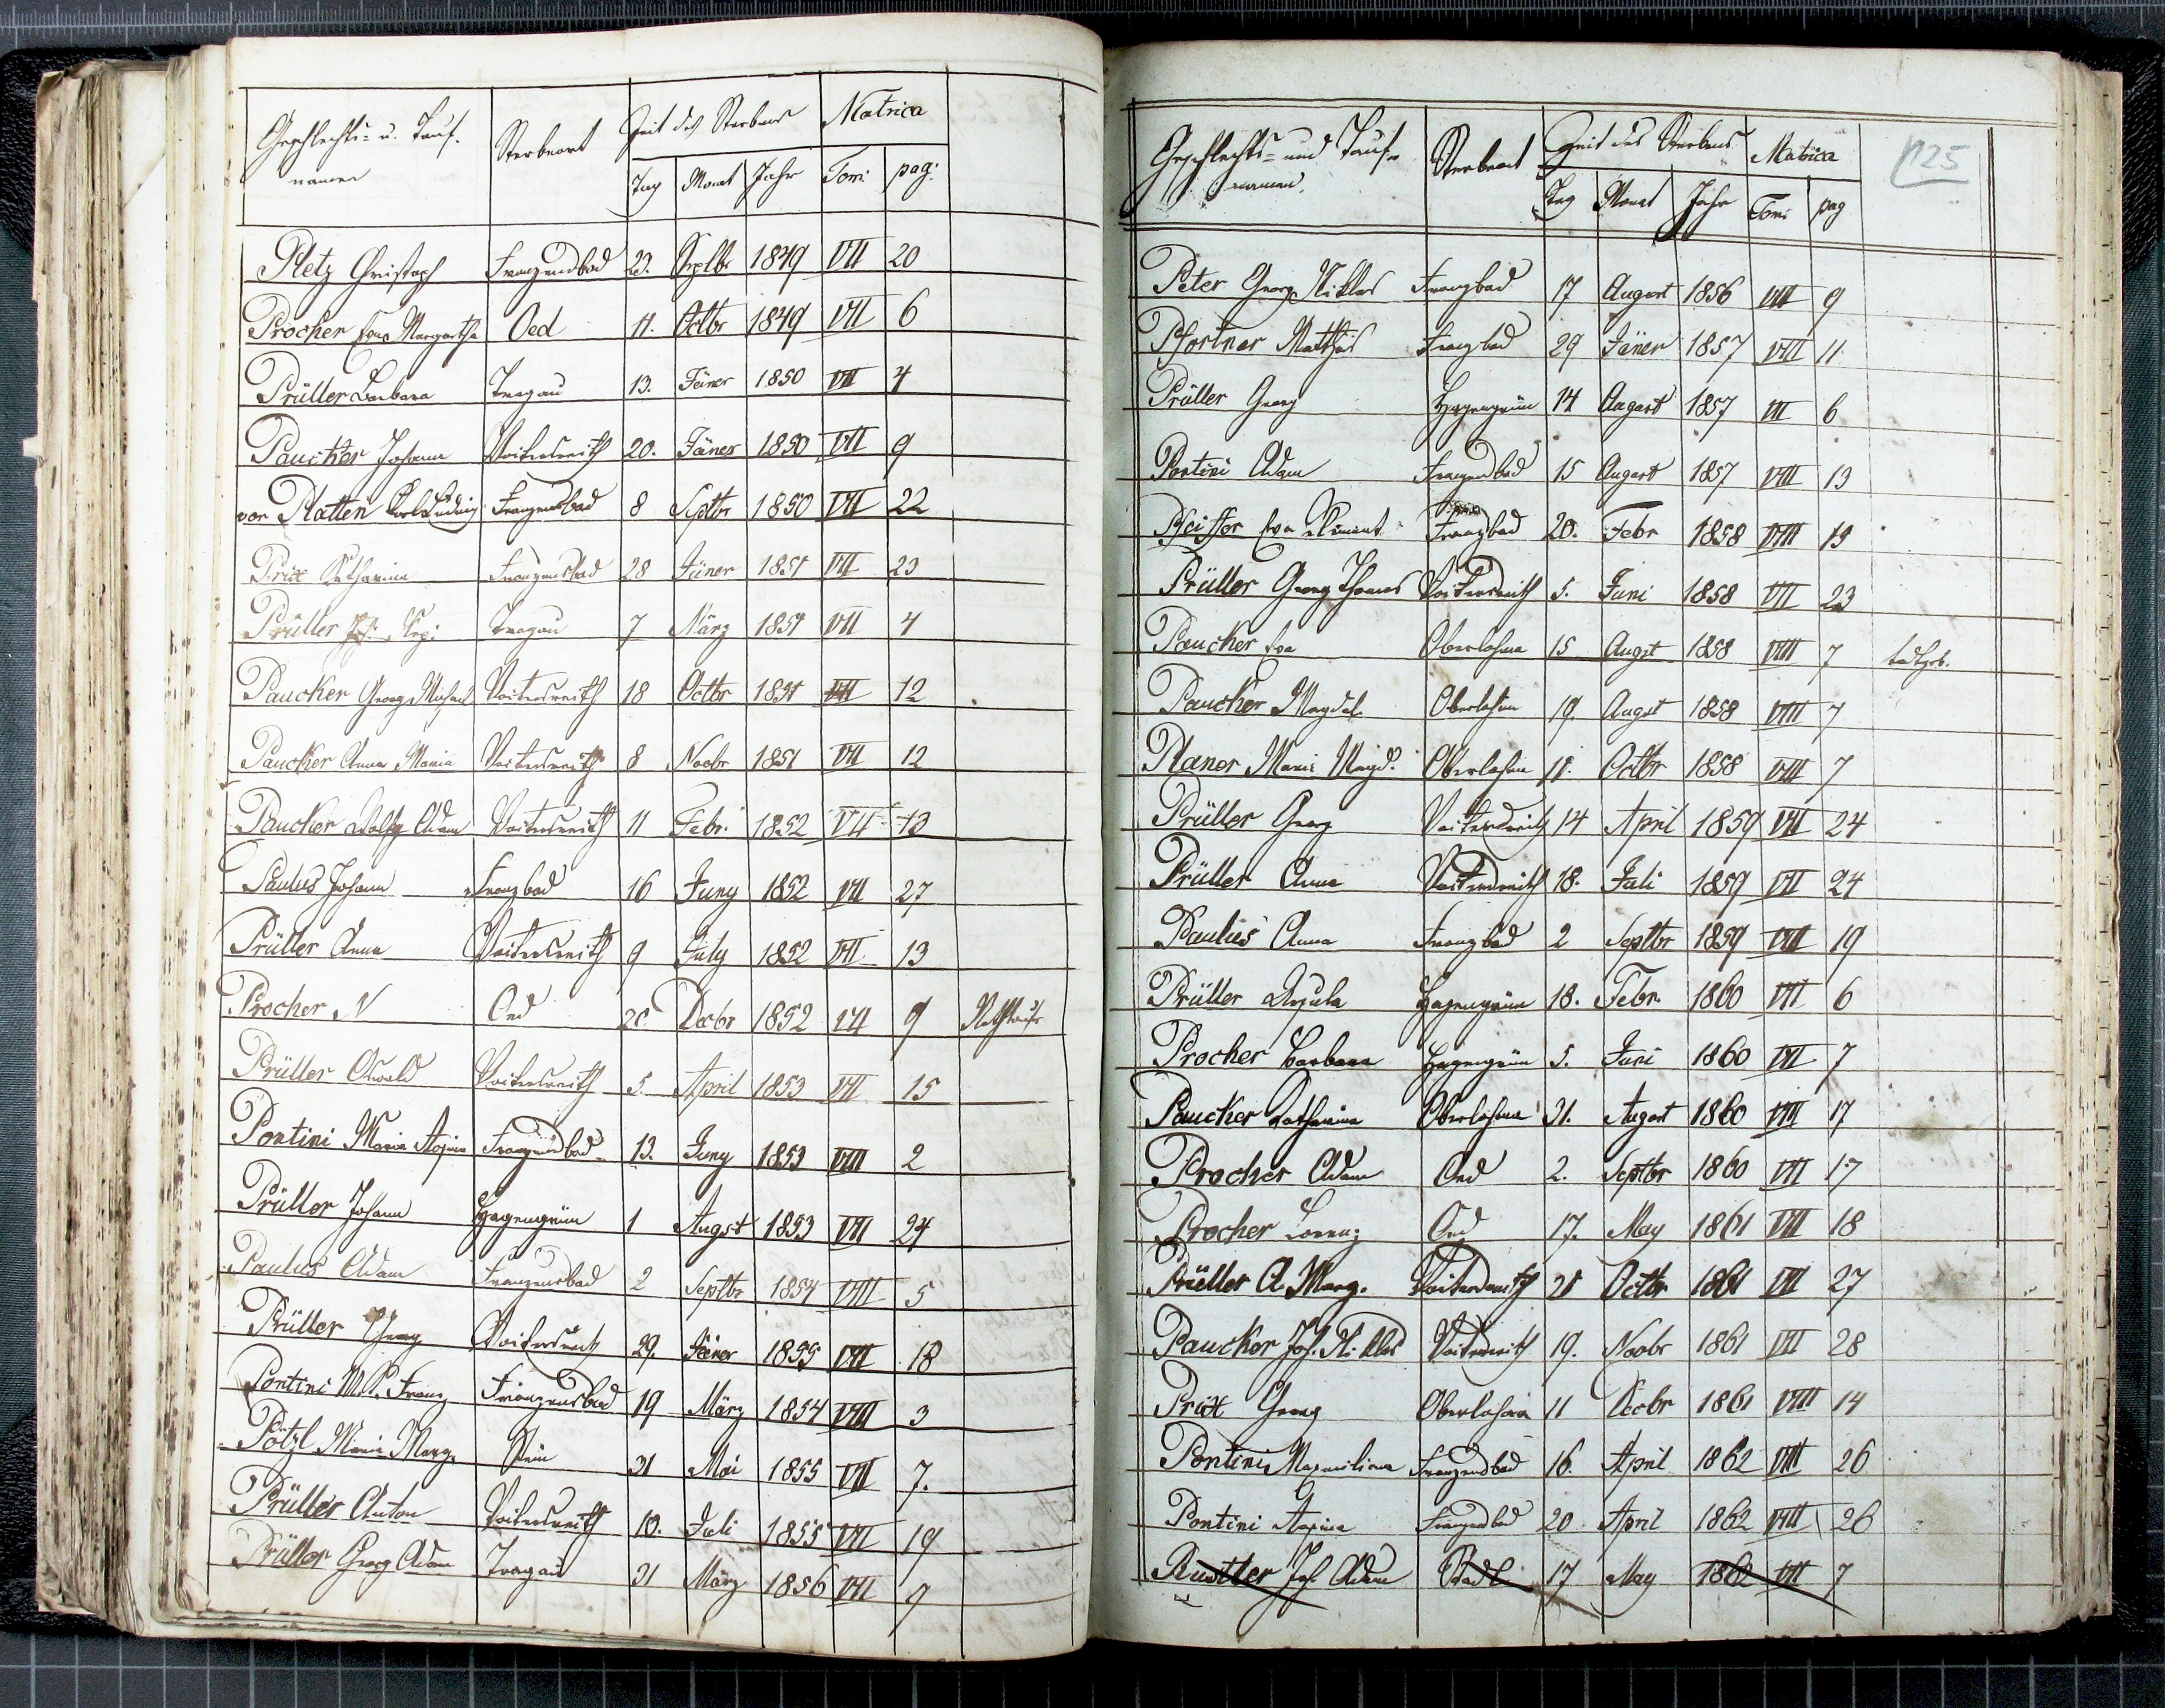 Geschlechts- u. Tauf- Sterbeort Zeit des Sterbens Matrica
namen Tag Monat Jahr Tom: pag:
Pletz Christoph Franzensbad 23. Septbr 1849 VII 20
Procher Eva Margaretha Oed 11. Octbr 1849 VII 6
Prüller Barbara Tragau 13. Jäner 1850 VII 4
Paucker Johann Voitersreith 20. Jäner 1850 VII 9
von Platten Karl Ludwig Franzensbad 8 Septbr 1850 VII 22
Prix Katharina Franzensbad 28 Jäner 1851 VII 23
Prüller Tragau 7 März 1851 VII 4
Paucker Georg Michael Voitersreith 18 Octbr 1851 VII 12
Paucker Anna Maria Voitersreith 8 Novbr 1851 VII 12
Paucker Wolfg Adam Voitersreith 11 Febr. 1852 VII 13
Paulus Johann Franzbad 16 Juny 1852 VII 27
Prüller Anna Voitersreith 9 July 1852 VII 13
Procher N Oed Decbr 1852 VII 9 Nothtaufe
Prüller Oswald Voitersreith 5. April 1853 VII 15
Pontini Maria Franzensbad 13. Juny 1853 VIII 2
Prüller Johann Hagengrün 1 Augst 1853 VII 24
Paulus Adam Franzensbad 2 Septbr 1854 VIII 5
Prüller Georg Voitersreith 29. Jäner 1855 VII 18
Pontini Franz Franzensbad 19 März 1854 VIII 3
Pötzl Maria Marg. Stein 31 Mai 1855 VII 7.
Prüller Anton Voitersreith 10. Juli 1855 VII 19
Prüller Georg Adam Tragau 31 März 1856 VII 9
125
Geschlechts- und Tauf- Sterbeort Zeit des Sterbens Matrica
namen Tag Monat Jahr Tom: pag
Peter Georg Niklas Franzbad 17 August 1856 VIII 9
Pfortner Matthias Franzbad 29 Jäner 1857 VIII 11
Prüller Georg Hagengrün 14 August 1857 VII 6
Pontini Adam Franzensbad 15 August 1857 VIII 13
Pfeiffer Eva Franzbad 20. Febr 1858 VIII 15
Prüller Georg Thomas Voitersreith 5. Juni 1858 VII 23
Paucker Eva Oberlohma 15 Augst 1858 VIII 7 todtgeb.
Paucker Magdal. Oberlohma 19. Augst 1858 VIII 7
Planer Maria Magd. Oberlohma 11. Octbr 1858 VIII 7
Prüller Georg Voitersreith 14 April 1859 VII 24
Prüller Anna Voitersreith 18. Juli 1859 VII 24
Paulus Anna Franzbad 2 Septbr 1859 VIII 19
Prüller Ursula Hagengrün 18. Febr. 1860 VII 6
Procher Barbara Hagengrün 5. Juni 1860 VII 7
Paucker Katharina Oberlohma 31. August 1860 VIII 17
Procher Adam Oed 2. Septbr 1860 VII 17
Procher Lorenz Oed 17. May 1861 VII 18
Prüller A. Marg. Voitersreith 21 Octbr 1861 VII 27
Paucker Joh. Niklas Voitersreith 19. Novbr 1861 VII 28
Prix Georg Oberlohma 11 Decbr 1861 VIII 14
Pontini Maximiliana Franzensbad 16. April 1862 VIII 26
Pontini Franzensbad 20 April 1862 VIII 26
Rustler Joh. Adam Stadl 17 May 1862 VII 7